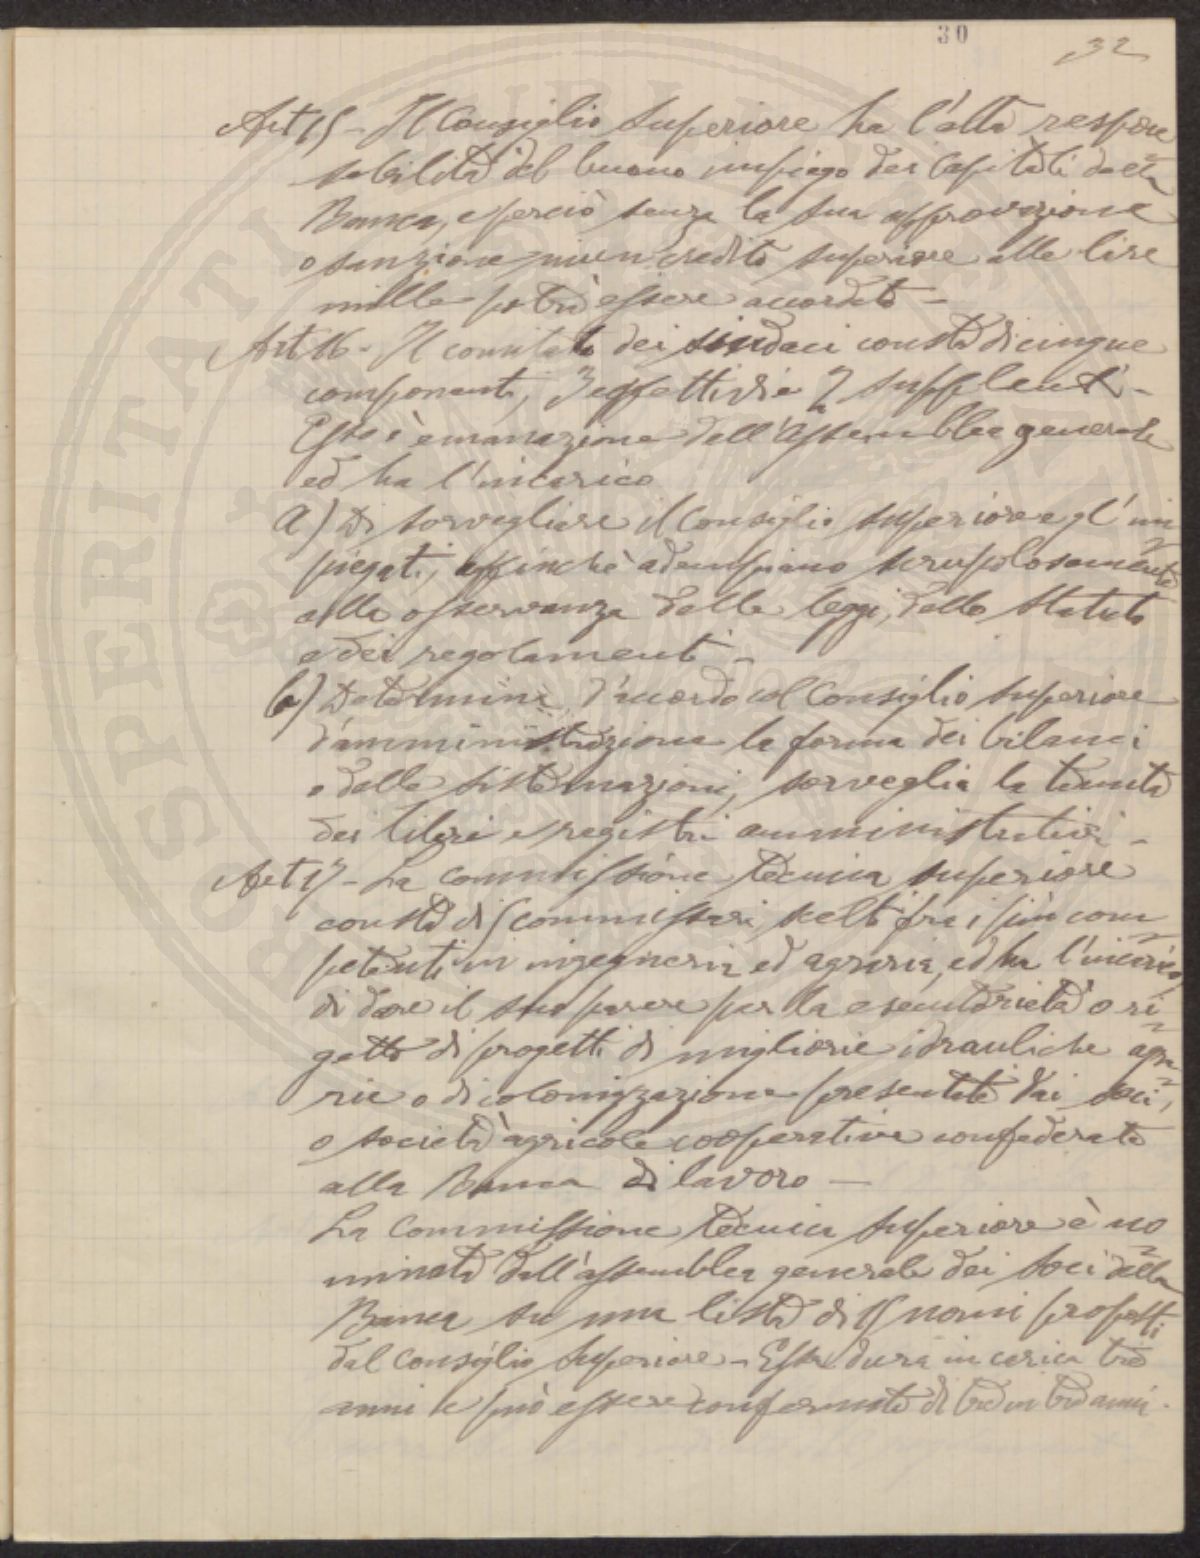 30
32
Art 15 - Il Consiglio Superiore ha l'alta respon
sabilità del buono impiego dei Capitali della
Banca, e perciò senza la sua approvazione
o sanzione niun credito superiore alle lire
mille potrà essere accordato -
Art 16 - Il comitato dei sindaci consta di cinque
componenti, 3 effettivi e 2 supplenti -
Esso è emanazione dell'Assemblea generale
ed ha l'incarico
a) Di sorvegliare il Consiglio superiore e gl'im
piegati, affinchè adempiano scrupolosamente
alla osservanza delle leggi, dello Statuto
e dei regolamenti -
b) Determina d'accordo col Consiglio superiore
d'amministrazione la forma dei bilanci
e delle sistemazioni, sorveglia la tenuta
dei libri e registri amministrativi -
Art 17 - La Commissione tecnica superiore
consta di 5 commissari scelti fra i più com
petenti in ingegneria ed agraria, ed ha l'incarico
di dare il suo parere per la esecutorietà o ri
getto di progetti di migliorie idrauliche agra
rie o di colonizzazione presentate dai soci,
o società agricole cooperative confederate
alla Banca di lavoro -
La Commissione tecnica superiore è no
minata dall'assemblea generale dei soci della
Banca su una lista di 15 nomi proposti
dal Consiglio Superiore - Essa dura in carica tre
anni e può essere confermata di tre in tre anni -
SPERITATI